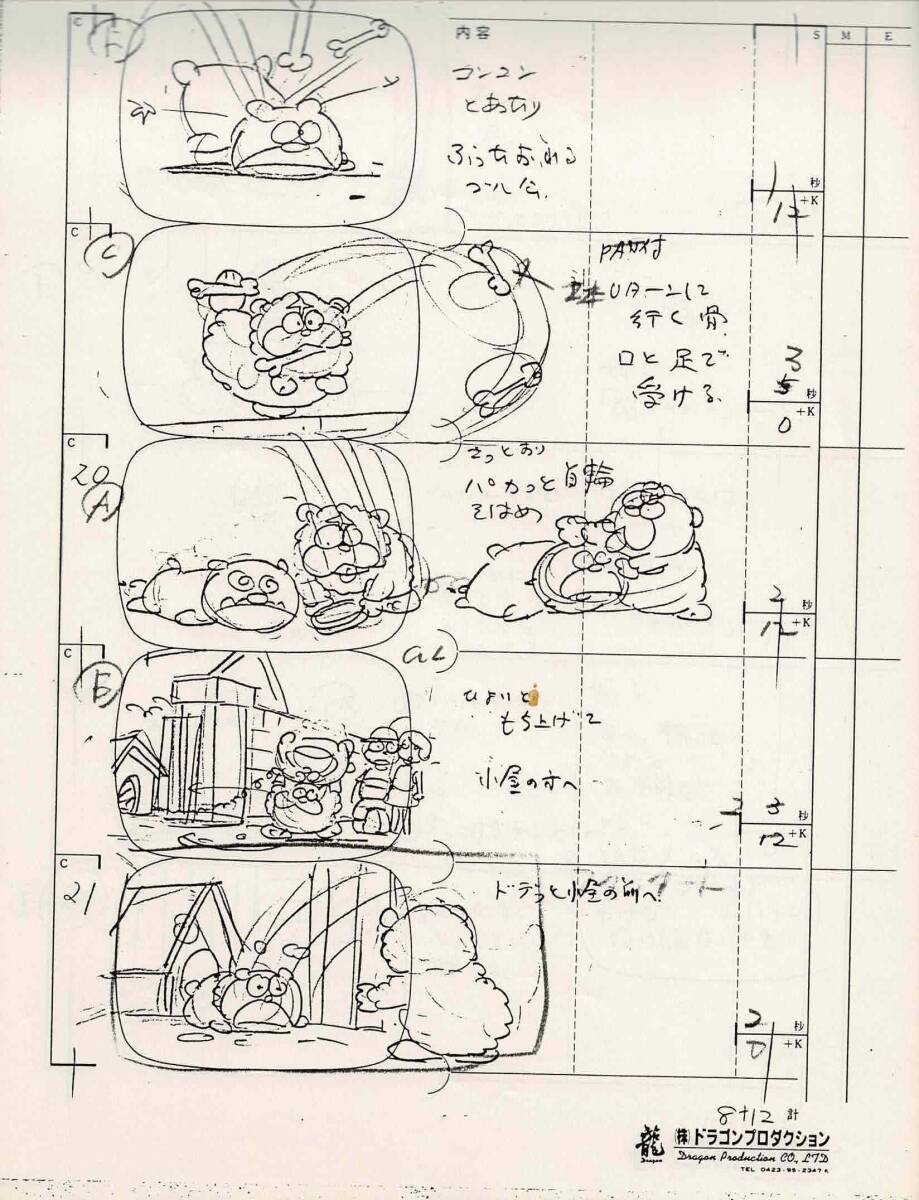 内容
S M E
C
コンコン
とあたり
ぶったおれる
1
秒
+K
12
C
C
PAN付
Uターンして
行く骨
口と足で
受ける
3
秒
+K
0
C
20
A
さっとおり
パカッと首輪
をはめ
2
秒
+K
12
C
B
ひょいと
もち上げて
小屋の方へ
3
秒
+K
12
C
21
ドテっと小屋の前へ
2
秒
+K
0
8+12 計
龍
Dragon
(株)ドラゴンプロダクション
Dragon Production CO., LTD
TEL 0423-95-2347